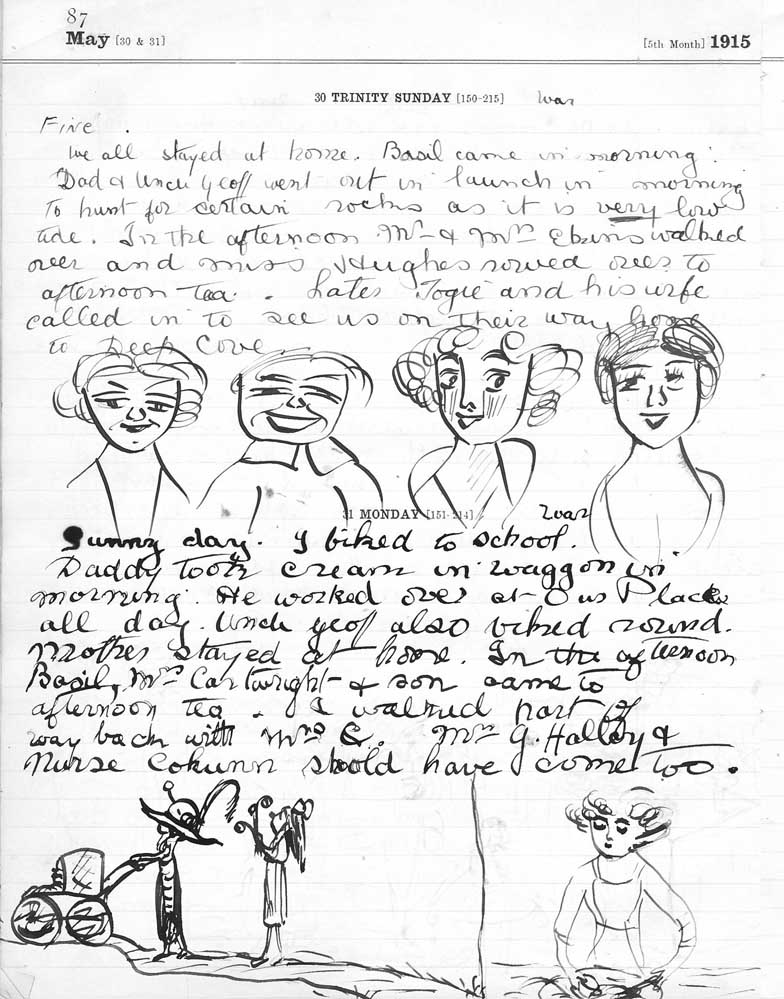 87
May [30 & 31] [5th Month] 1915
30 TRINITY SUNDAY [150-215] War
Fine.
We all stayed at home. Basil came in morning.
Dad & Uncle Geoff went out in launch in morning
to hunt for certain rocks as it is very low
tide. In the afternoon Mr & Mrs Ekins walked
over and Miss Hughes rowed over to
afternoon tea. Later Togie and his wife
called in to see us on their way home
to Deep Cove.
31 MONDAY [151-214] War
Sunny day. I biked to school.
Daddy took cream in waggon in
morning. He worked over at Our Place
all day. Uncle Geoff also biked round.
Mother stayed at home. In the afternoon
Basil, Mrs Cartwright & son came to
afternoon tea. I walked part of
way back with Mrs C. Mrs G. Halley &
Nurse should have come too.